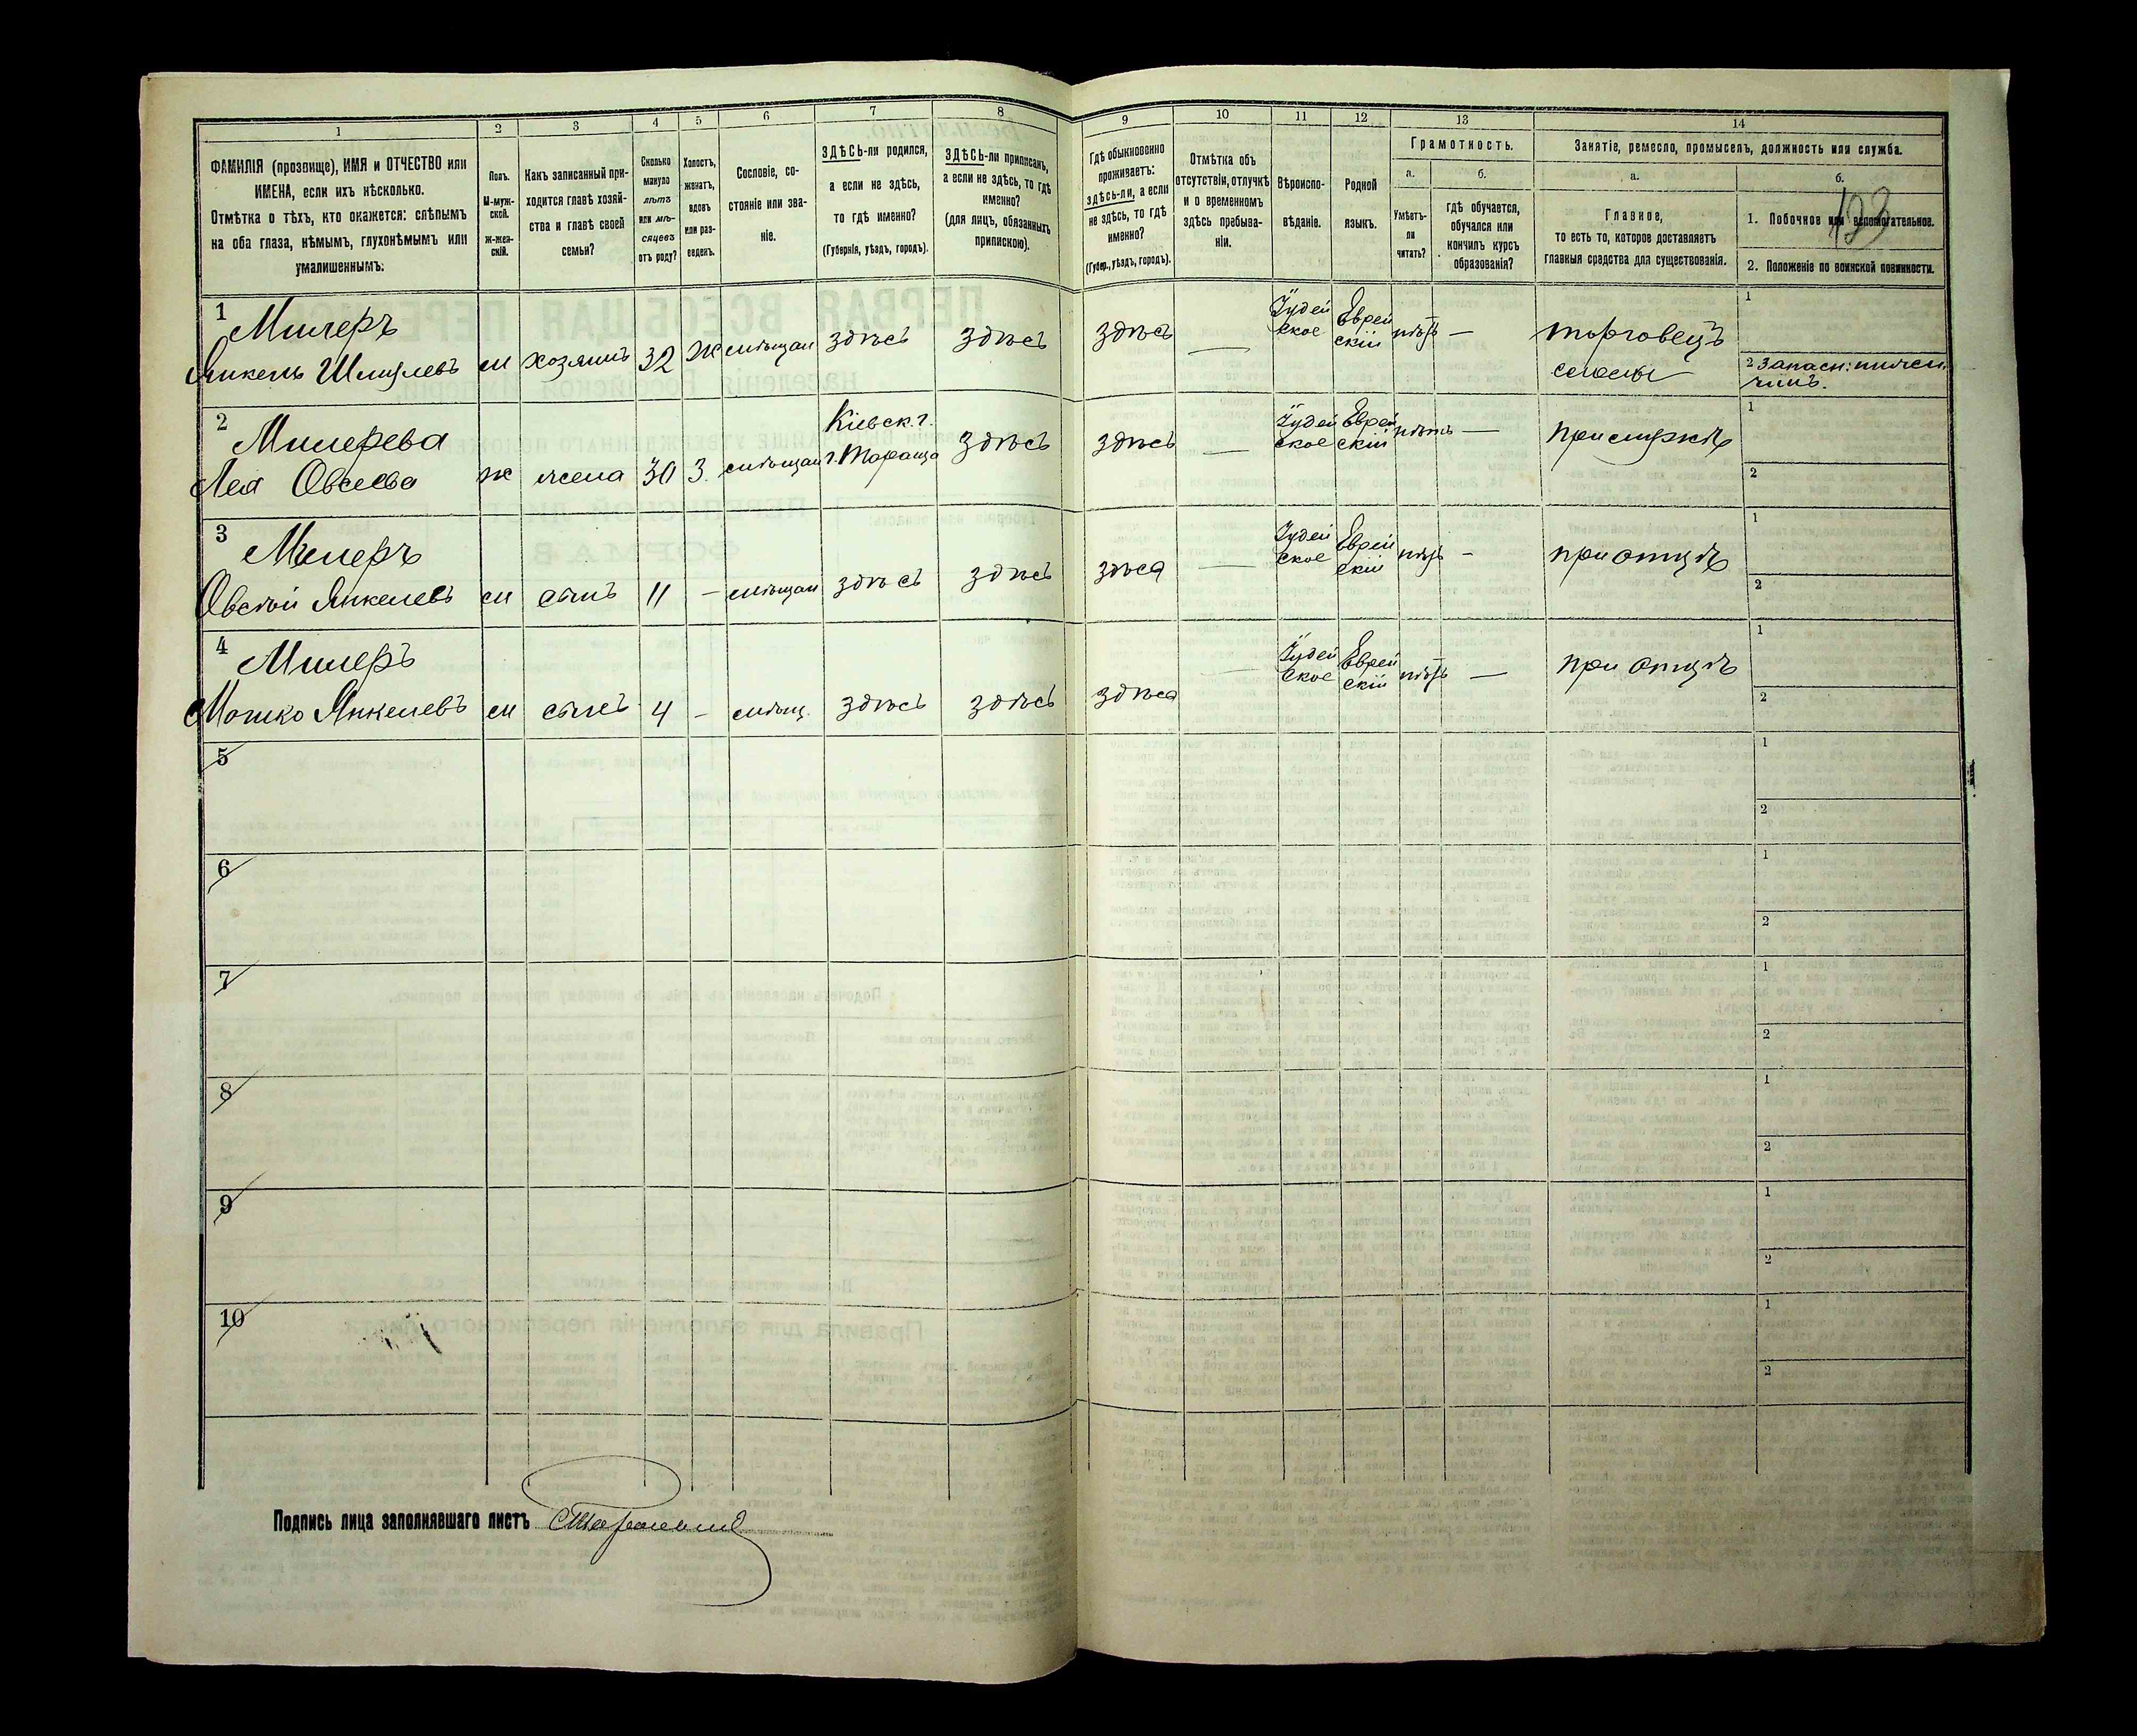 1
2
3
4
5
6
7
8
9
10
11
12
13
14
ФАМИЛІЯ (прозвище), ИМЯ и ОТЧЕСТВО или
ИМЕНА, если ихъ нѣсколько.
Отмѣтка о тѣхъ, кто окажется: слѣпымъ
на оба глаза, нѣмымъ, глухонѣмымъ или
умалишеннымъ.
Полъ.
М-муж-
ской.
Ж-жен-
скій.
Какъ записанный при-
ходится главѣ хозяй-
ства и главѣ своей
семьи?
Сколько
минуло
лѣтъ
или мѣ-
сяцевъ
отъ роду?
Холостъ,
женатъ,
вдовъ
или раз-
веденъ.
Сословіе, со-
стояніе или зва-
ніе.
ЗДѢСЬ-ли родился,
а если не здѣсь,
то гдѣ именно?
(Губернія, уѣздъ, городъ).
ЗДѢСЬ-ли приписанъ,
а если не здѣсь, то гдѣ
именно?
(для лицъ, обязанныхъ
припискою).
Гдѣ обыкновенно
проживаетъ:
здѣсь-ли, а если
не здѣсь, то гдѣ
именно?
(Губер., уѣздъ, городъ).
Отмѣтка объ
отсутствіи, отлучкѣ
и о временномъ
здѣсь пребыва-
ніи.
Вѣроиспо-
вѣданіе.
Родной
языкъ.
Грамотность.
а.
Умѣетъ-
ли
читать?
б.
гдѣ обучается,
обучался или
кончилъ курсъ
образованія?
Занятіе, ремесло, промыселъ, должность или служба.
а.
Главное,
то есть то, которое доставляетъ
главныя средства для существованія.
б.
1. Побочное или вспомогательное.
2. Положеніе по воинской повинности.
123
1
Милеръ
Янкель Шмулевъ м хозяинъ 32 Ж мѣщан здѣсь здѣсь здѣсь —
Іудей
ское
Еврей
скій
нѣтъ —
торговецъ
1
2 Запасн:
2
Милерева
Лея Овсеева ж жена 30 З. мѣщан
Кіевск. г.
г. Тараща
здѣсь здѣсь —
Іудей
ское
Еврей
скій
нѣтъ —
1
2
3
Милеръ
Овсѣй Янкелевъ м сынъ 11 — мѣщан здѣсь здѣсь здѣсь —
Іудей
ское
Еврей
скій
нѣтъ —
при отцѣ
1
2
4
Милеръ
Мошко Янкелевъ м сынъ 4 — мѣщ. здѣсь здѣсь здѣсь —
Іудей
ское
Еврей
скій
нѣтъ —
при отцѣ
1
2
5
1
2
6
1
2
7
1
2
8
1
2
9
1
2
10
1
2
Подпись лица заполнявшаго листъ